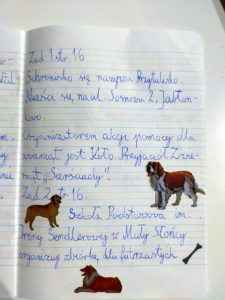 Zad.1 str.16
Schronisko się nazywa Przytulisko.
Mieści się na ul. Sosnowa 2, Jabłon-
lowo.
Organizatorem akcji pomocy dla
zwierząt jest Koło Przyjaciół Zwie-
rząt „Sierściuchy".
Zad.2 str.16.
Szkoła Podstawowa im.
Ireny Sendlerowej w Małej Słońcy
organizuje zbiórkę dla futrzastych